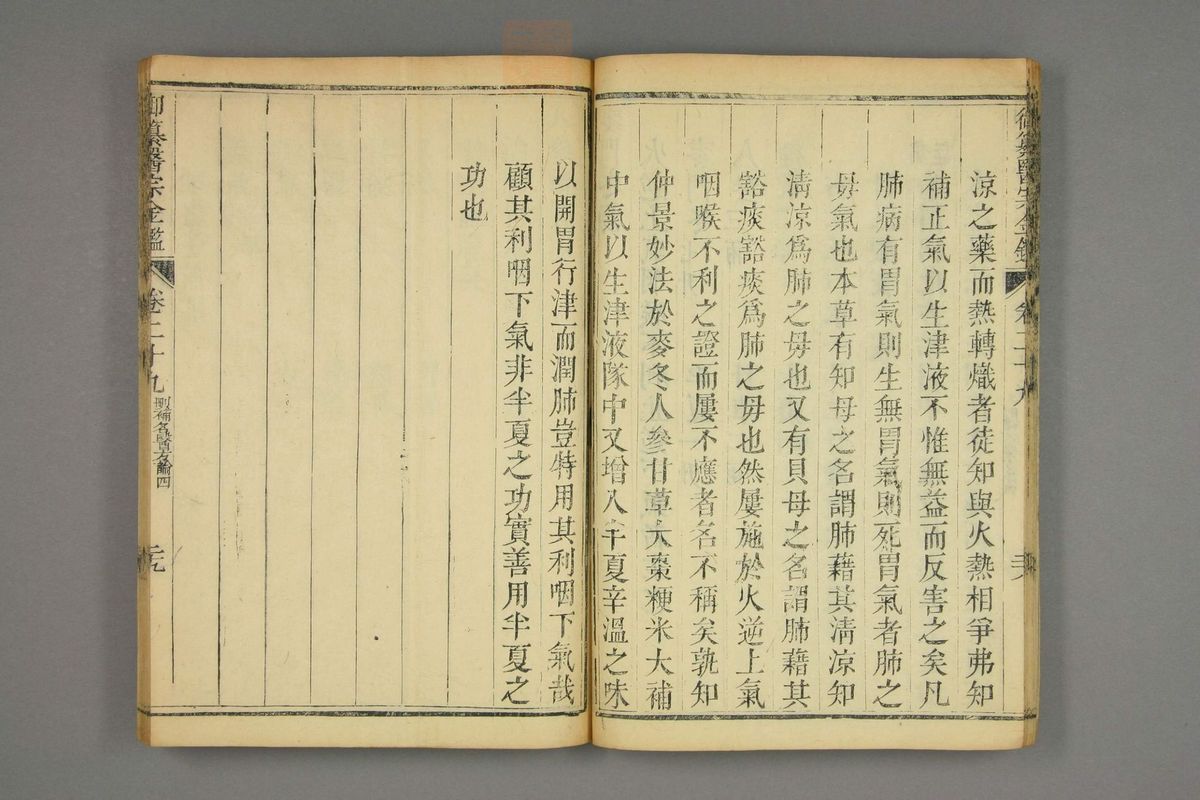 御纂醫宗金鑑 卷二十九
涼之藥而熱轉熾者徒知與火熱相爭弗知
補正氣以生津液不惟無益而反害之矣凡
肺病有胃氣則生無胃氣則死胃氣者肺之
母氣也本草有知母之名謂肺藉其淸涼知
淸涼爲肺之母也又有貝母之名謂肺藉其
豁痰豁痰爲肺之母也然屢施於火逆上氣
咽喉不利之證而屢不應者名不稱矣孰知
仲景妙法於麥冬人參甘草大棗粳米大補
中氣以生津液隊中又增入半夏辛溫之味
以開胃行津而潤肺豈特用其利咽下氣哉
顧其利咽下氣非半夏之功實善用半夏之
功也
御纂醫宗金鑑 卷二十九 刪補名醫方論四 元